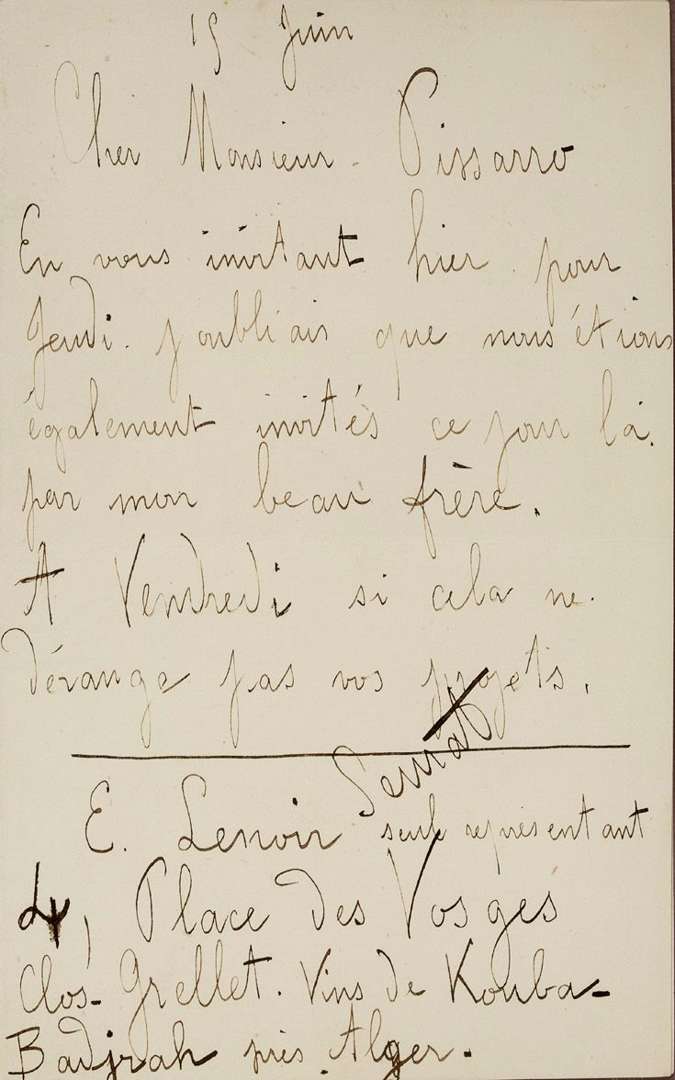 15 Juin
Cher Monsieur Pissarro
En vous invitant hier pour
Jeudi. j'oubliais que nous étions
également invités ce jour là.
par mon beau frère.
A Vendredi si cela ne
dérange pas vos projets.
Seurat
E. Lenoir seul représentant
4, Place des Vosges
Clos-Grellet. Vins de Kouba-
Badjrah près Alger.